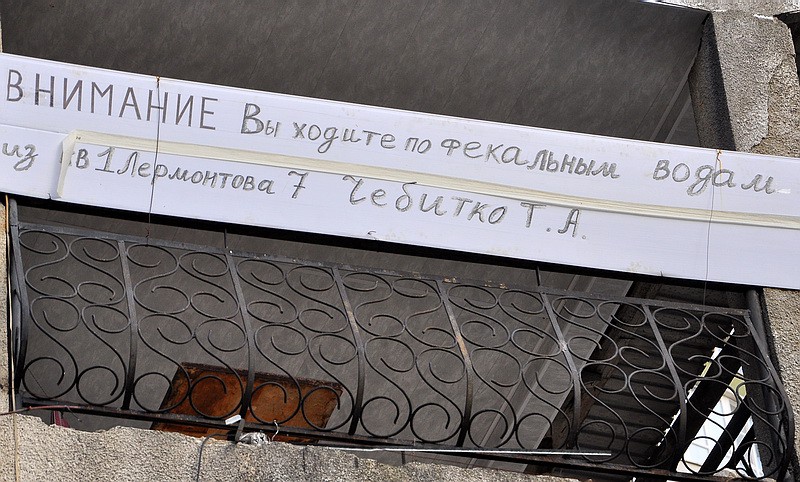 ВНИМАНИЕ Вы ходите по фекальным водам
из кв 1 Лермонтова 7 Чебитко Т.А.